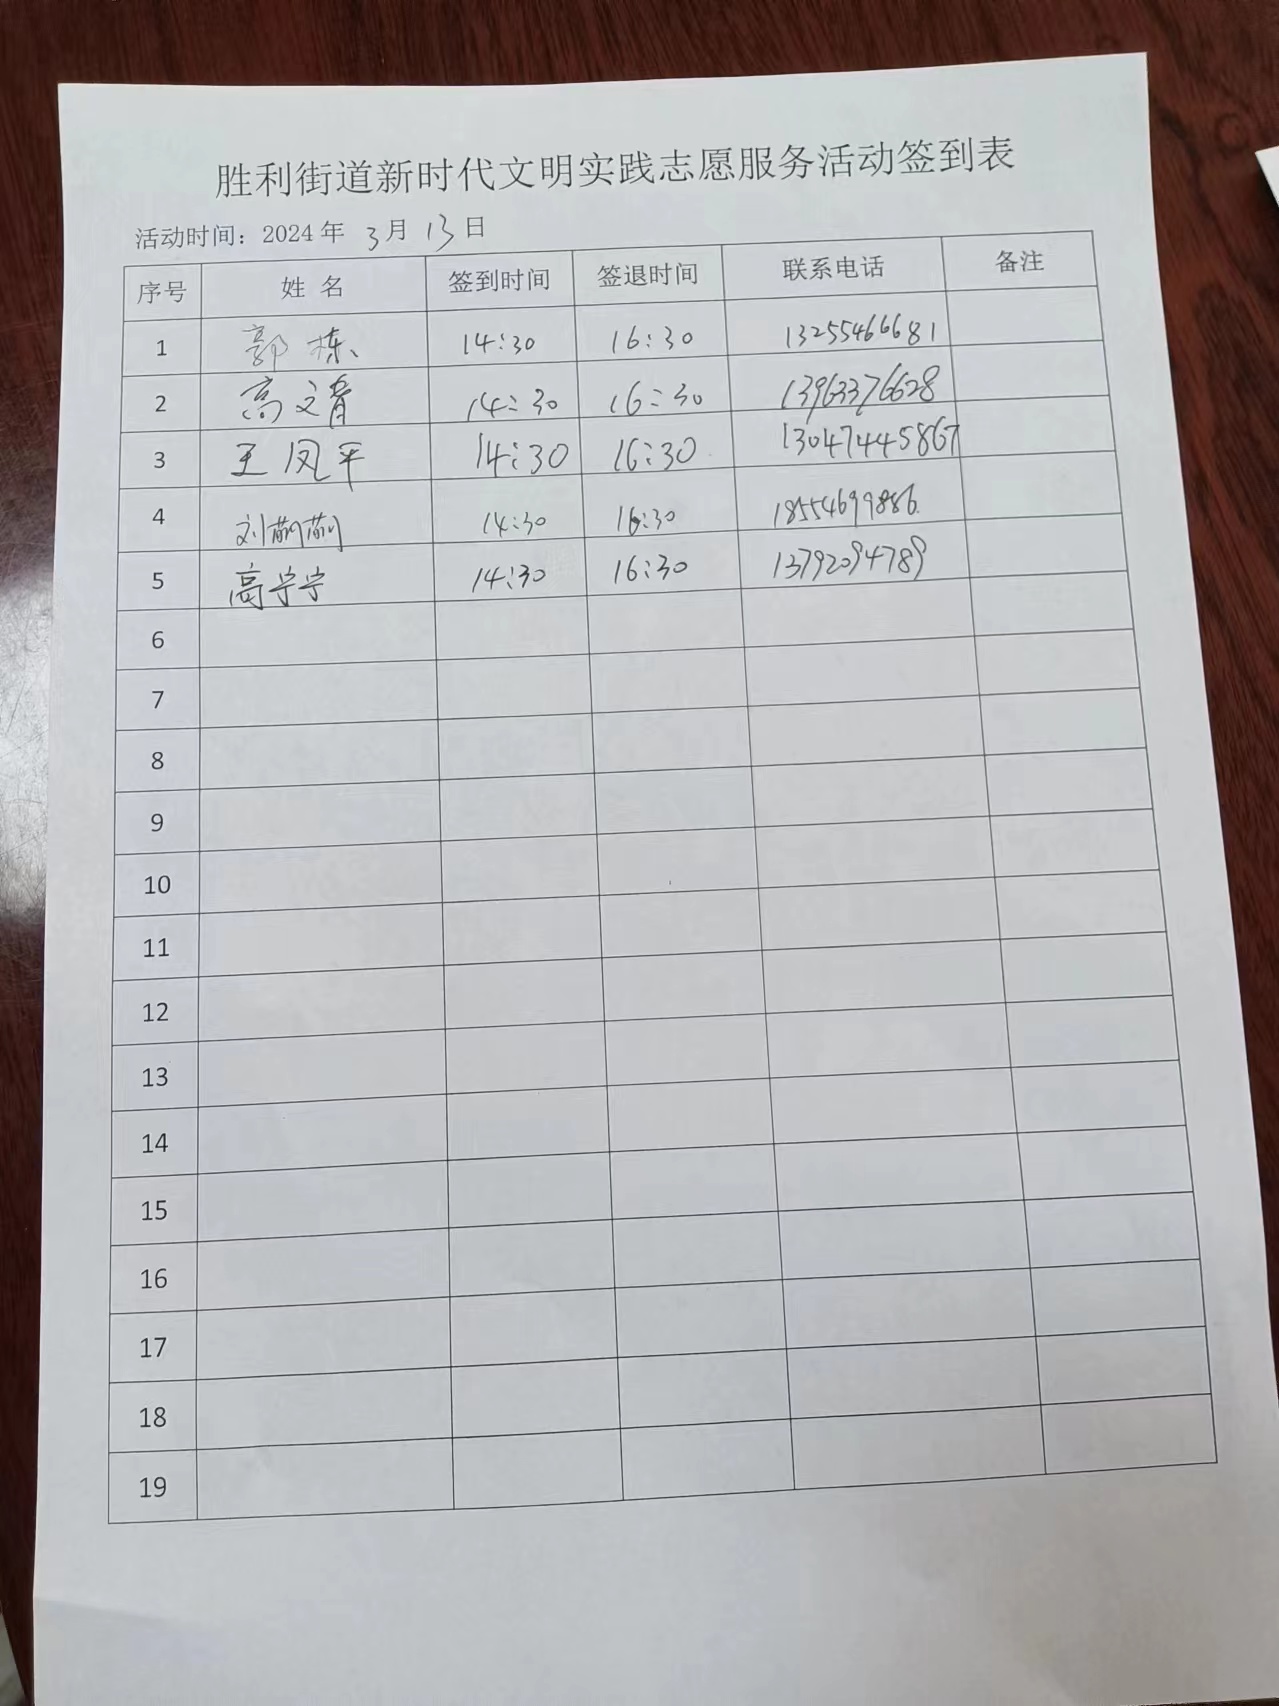 胜利街道新时代文明实践志愿服务活动签到表
活动时间：2024 年 3 月 13 日
序号 姓 名 签到时间 签退时间 联系电话 备注
1 郭栋 14:30 16:30 13255466681
2 高文青 14:30 16:30 13963376628
3 王凤平 14:30 16:30 13047445867
4 刘 14:30 16:30 18554699886
5 高宁宁 14:30 16:30 13792094789
6
7
8
9
10
11
12
13
14
15
16
17
18
19